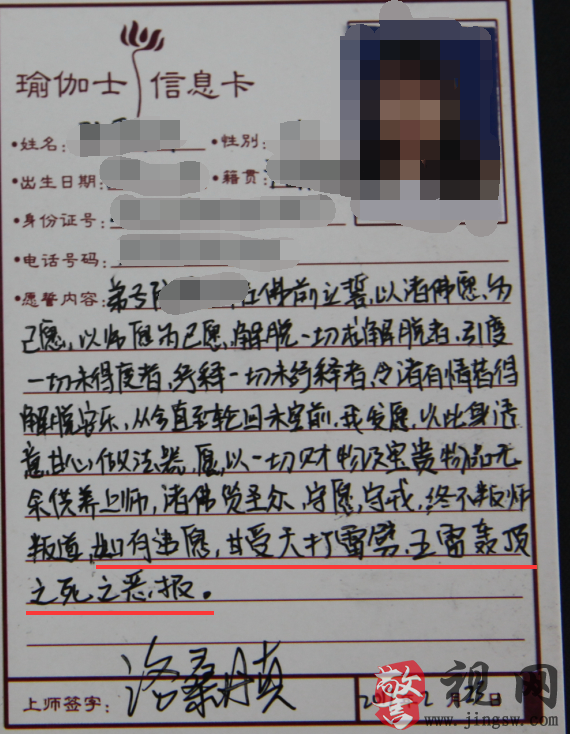 瑜伽士 信息卡
•姓名: •性别:
•出生日期: •籍贯:
•身份证号:
•电话号码:
•愿誓内容: 弟子 在佛前立誓,以诸佛愿为
己愿,以师愿为己愿,解脱一切求解脱者,引度
一切未得度者,绔释一切未绔释者,令诸有情皆得
解脱安乐,从今直至轮回未空前,我发愿,以此身语
意甘心做法器,愿以一切财物及宝贵物品无
余供养上师,诸佛贤圣众,守愿,守戒,终不叛师
叛道,如有违愿,甘受天打雷劈,五雷轰顶
之死之恶报。
上师签字: 洛桑丹真
月 日
警视网
www.jingsw.com